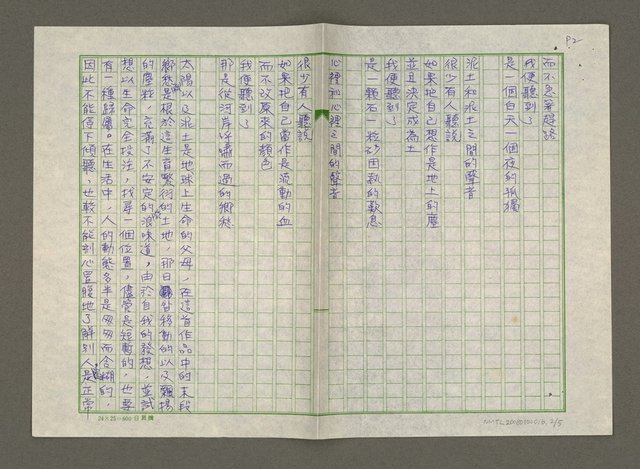 P2
而不急著趕路
我便聽到了
是一個白天一個夜的孤獨
泥土和泥土之間的聲音
很少有人聽說
如果把自己想作是地上的塵
並且決定成為土
我便聽到了
是一顆石一粒砂固執的歎息
心裡和心裡之間的聲音
很少有人聽說
如果把自己當作是流動的血
而不改原來的顏色
我便聽到了
那是從河岸呼嘯而過的鄉愁
太陽以及泥土是地球上生命的父母，在這首作品中的末段
鄉愁是根於這生育繁衍的土地，那日皆移動的以及飄揚
的塵粒，充滿了不安定的浪味道，由於自我的發想，並試
想以生命完全投注，找尋一個位置，儘管是短暫的，也要
有一種歸屬。在生活中，人的動態多半是匆匆而含糊的，
因此不能停下傾聽，也較不能剖心置腹地了解別人是正常
24×25=600
NMTL20080100016, 2/5